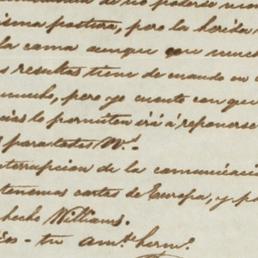 de no poderse
misma postura, pero la herida
la cama aunque con much
s resultas tiene de cuando en
mucho, pero yo cuento con que
cias lo permitan irá á reponerse
para todos Vs.
interrupcion de la comunicació
tenemos cartas de Europa, y p
hecho Williams.
tu amte. hermo.